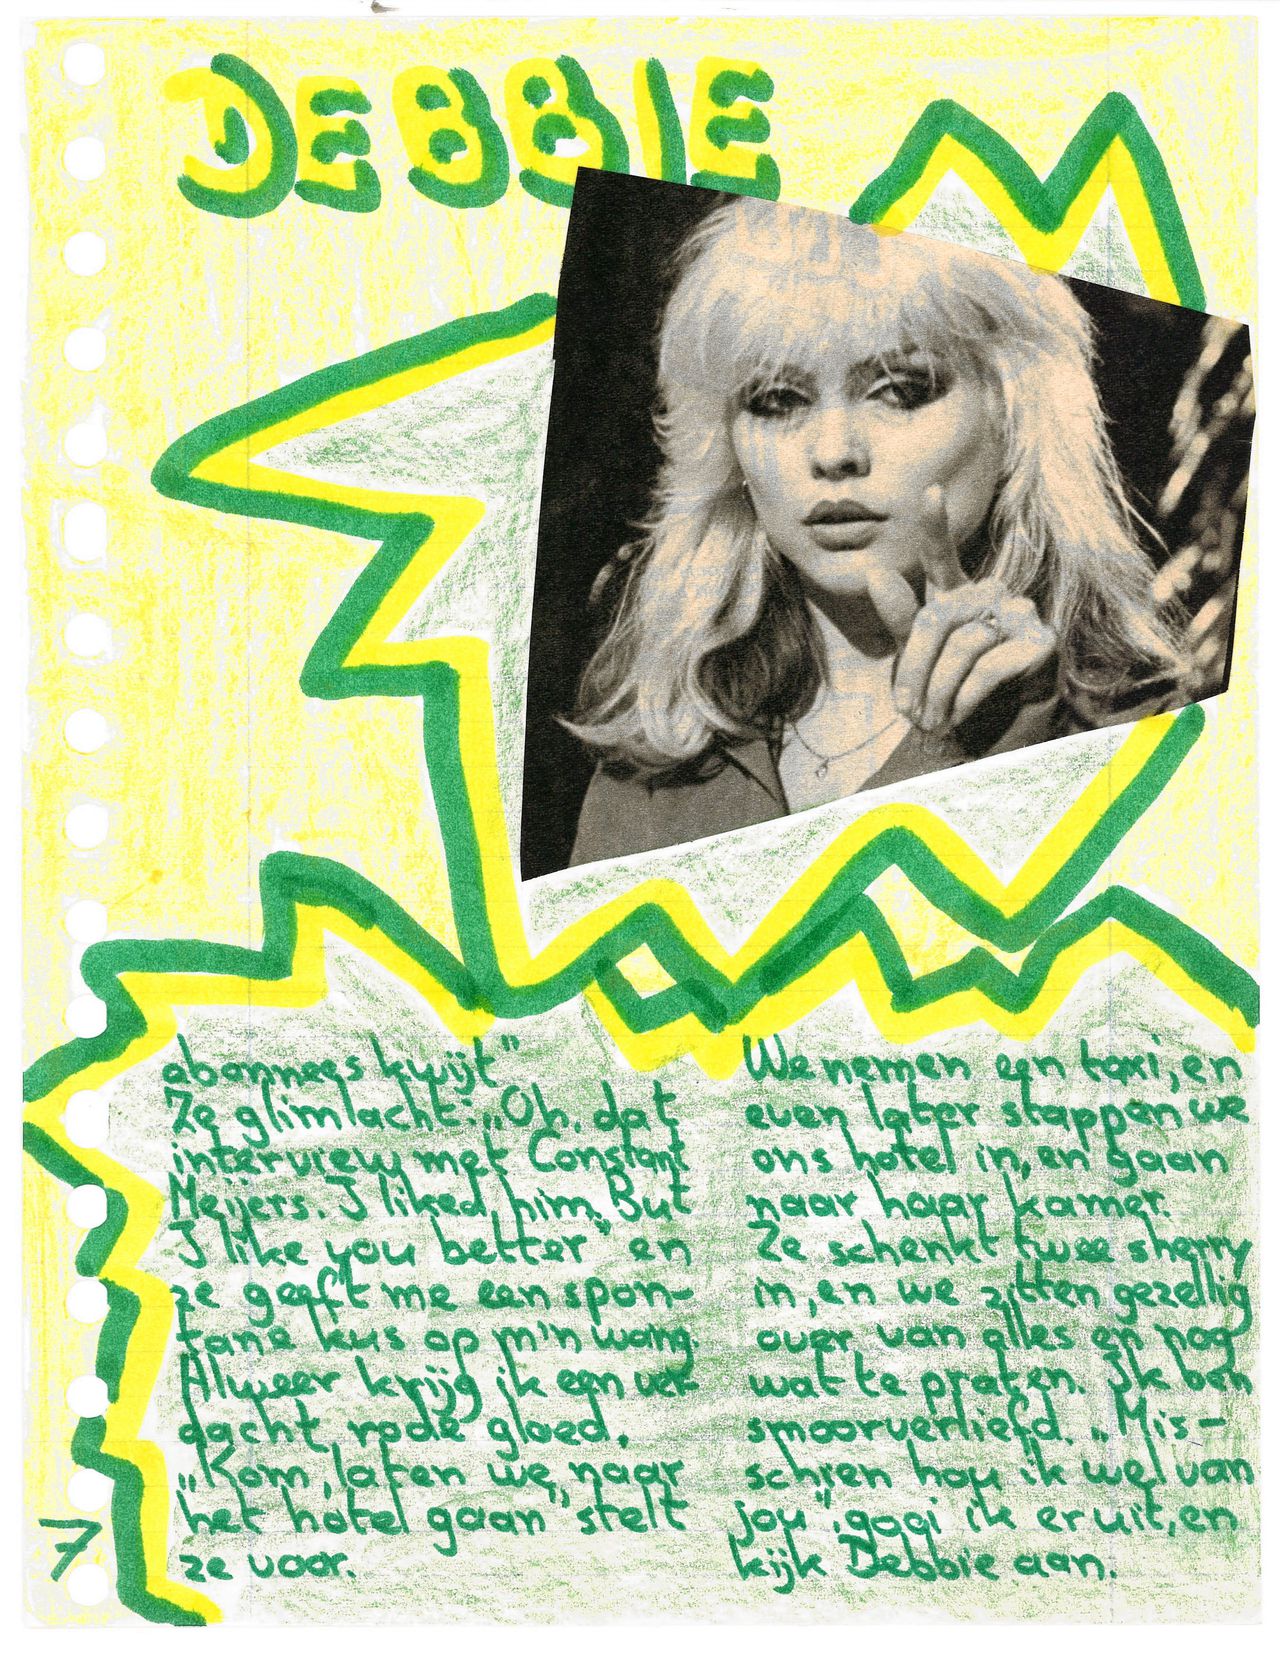 DEBBIE
abonnees kwijt"
Ze glimlacht: „Oh, dat
interview met Constant
Meijers. I liked him. But
I like you better" en
ze geeft me een spon-
tane kus op m'n wang.
Alweer krijg ik een ver-
dacht rode gloed.
„Kom, laten we naar
het hotel gaan" stelt
ze voor.
We nemen een taxi, en
even later stappen we
ons hotel in, en gaan
naar haar kamer.
Ze schenkt twee sherry
in, en we zitten gezellig
over van alles en nog
wat te praten. Ik ben
smoorverliefd. „Mis-
schien hou ik wel van
jou", gooi ik er uit, en
kijk Debbie aan.
7